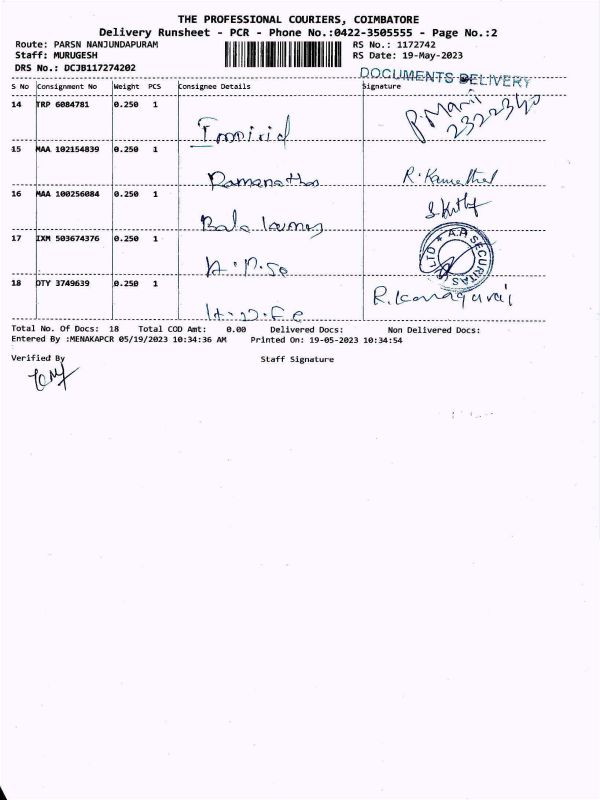 THE PROFESSIONAL COURIERS, COIMBATORE
Delivery Runsheet - PCR - Phone No.:0422-3505555 - Page No.:2
Route: PARSN NANJUNDAPURAM RS No.: 1172742
Staff: MURUGESH RS Date: 19-May-2023
DRS No.: DCJB117274202
DOCUMENTS DELIVERY
S No Consignment No Weight PCS Consignee Details Signature
14 TRP 6084781 0.250 1
P. Mani
2322340
15 MAA 102154839 0.250 1
Ramanatha
16 MAA 100256084 0.250 1
Bala
17 IXM 503674376 0.250 1
A.A SECURITAS LTD
18 DTY 3749639 0.250 1
R. Kanagaraj
Total No. Of Docs: 18 Total COD Amt: 0.00 Delivered Docs: Non Delivered Docs:
Entered By :MENAKAPCR 05/19/2023 10:34:36 AM Printed On: 19-05-2023 10:34:54
Verified By Staff Signature